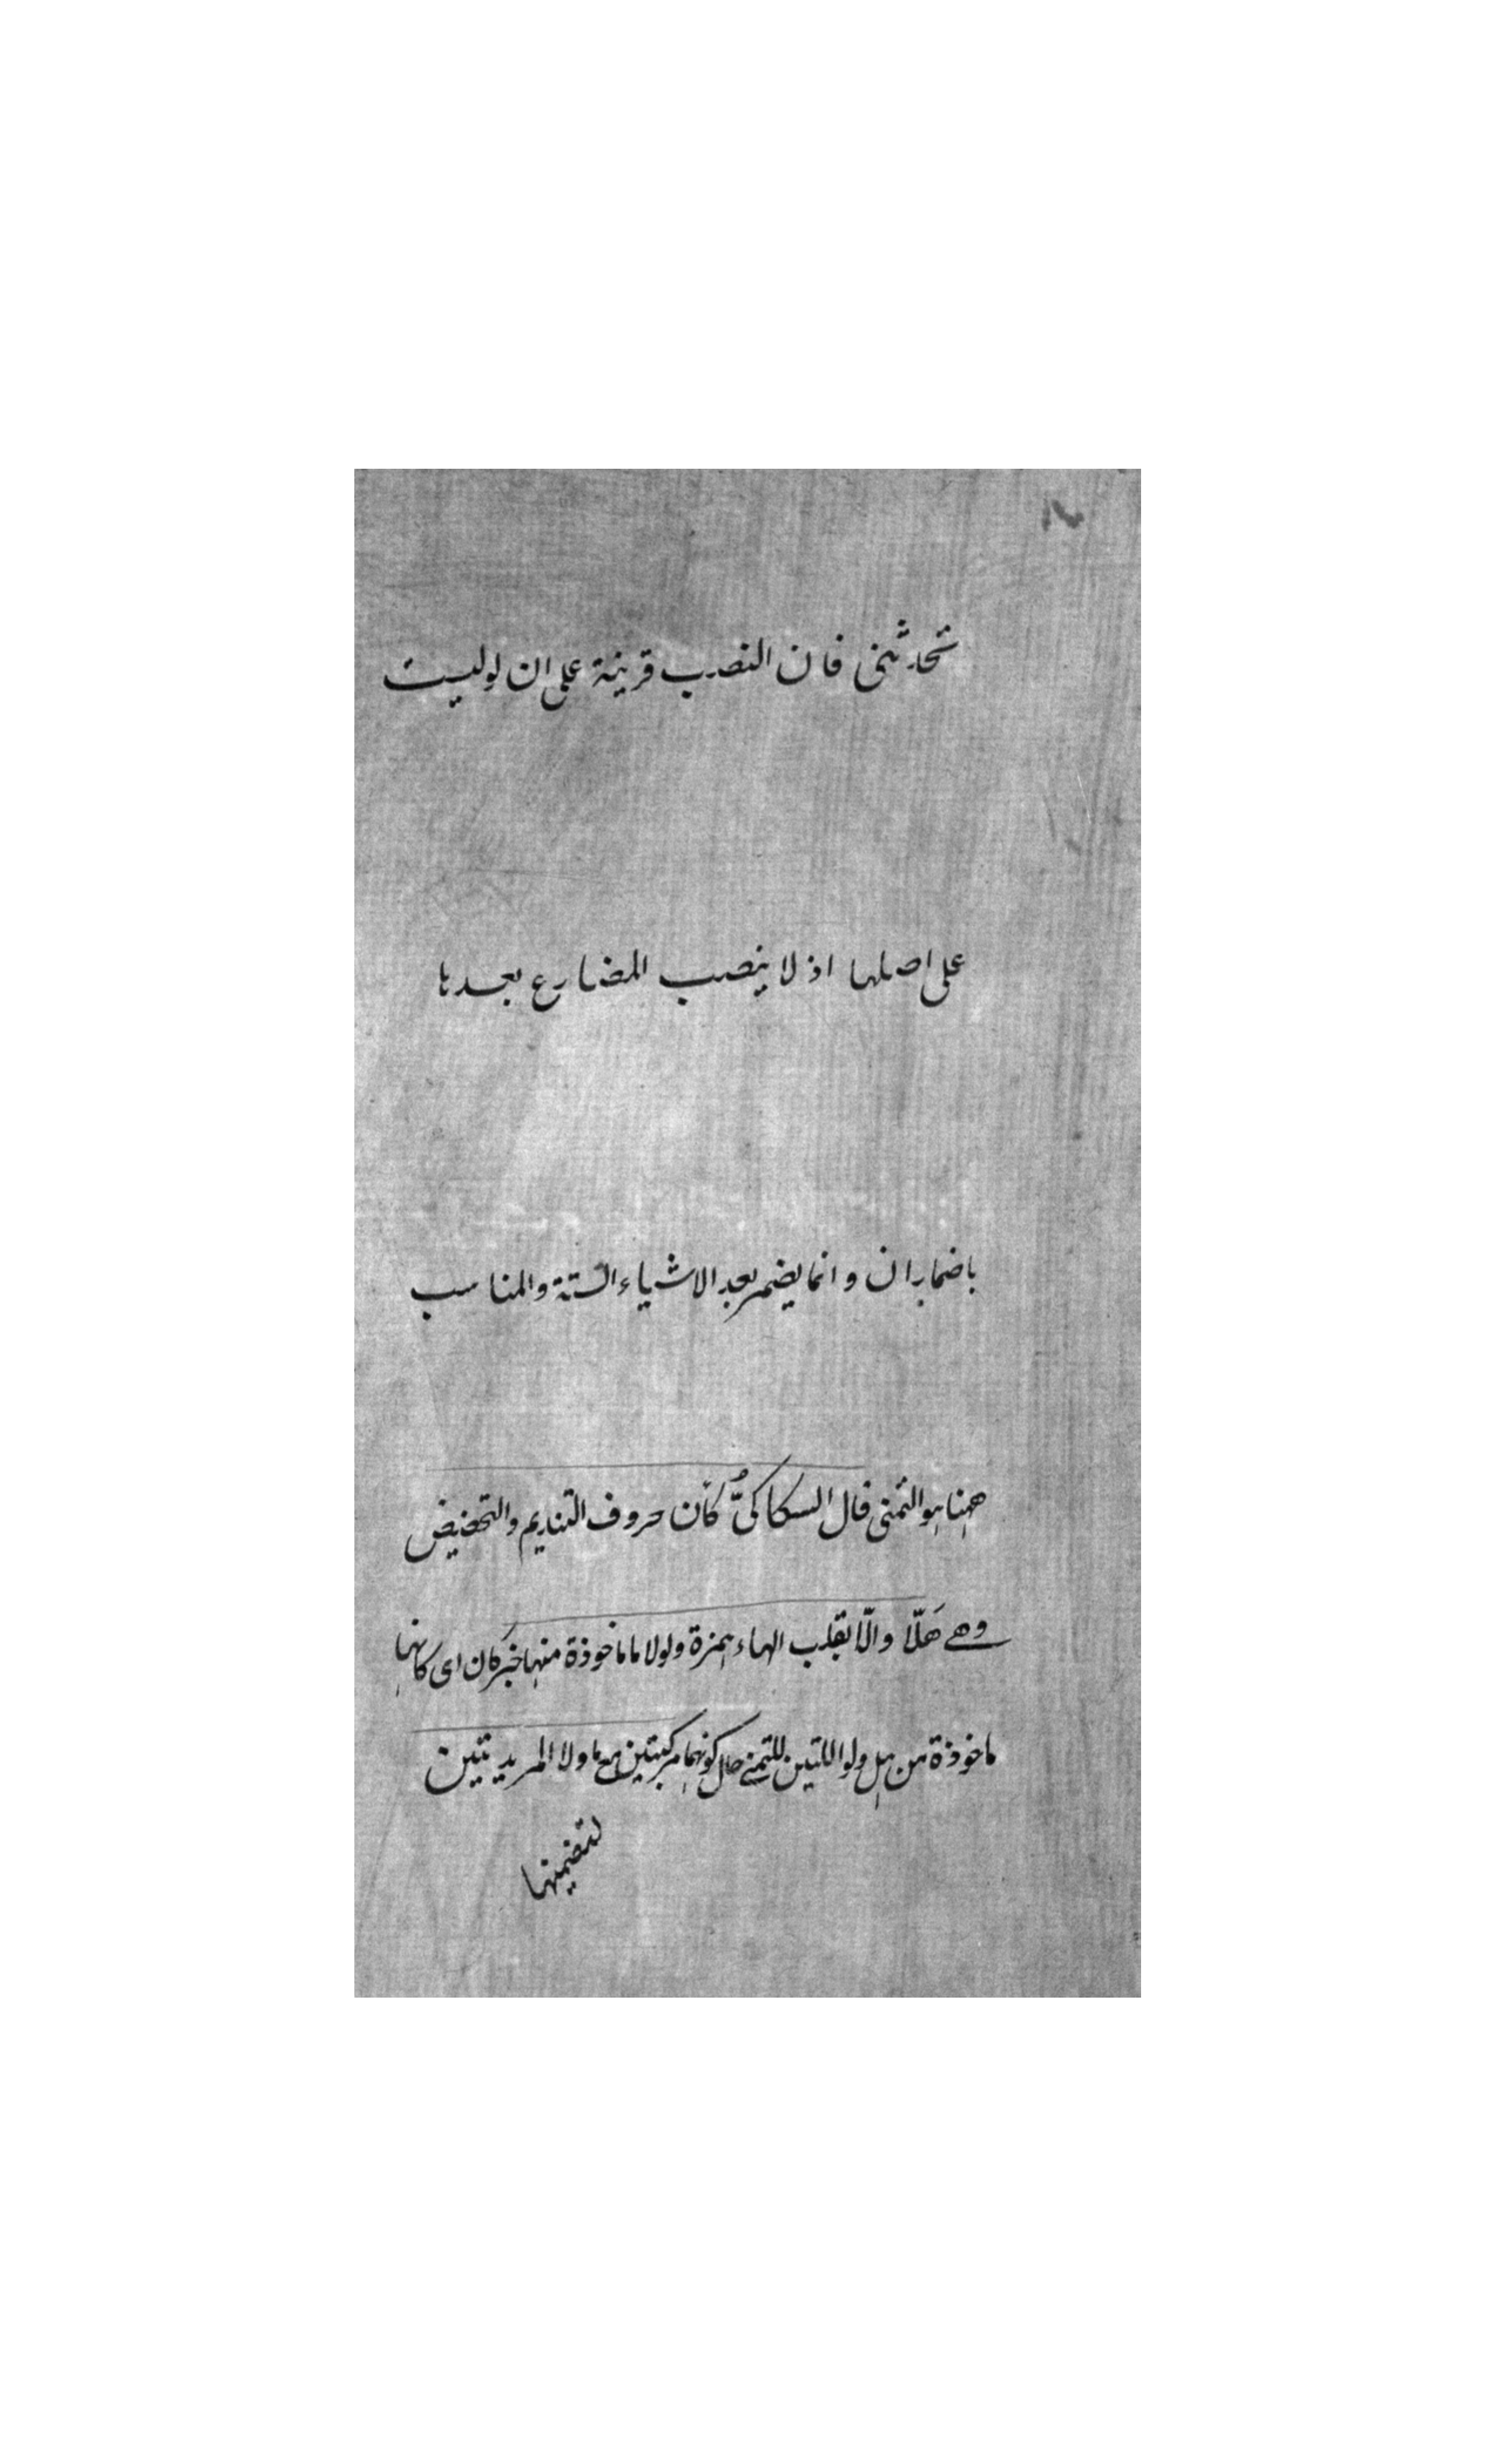 تحدثنى فان النصب قرينة على ان لو ليست
على اصلها اذ لا ينصب المضارع بعدها
باضمار ان و انما يضمر بعد الاشياء الستة والمناسب
ههنا هو التمنى قال السكاكىّ كأن حروف التنديم والتحضيض
وهے هَلّا والّا بقلب الهاء همزة ولولا ما ماخوذة منها خبر كان اى كانها
ماخوذة من هل ولو اللتين للتمنے حال كونهما مركبتين مع ما ولا المزيدتين
لتضمينها